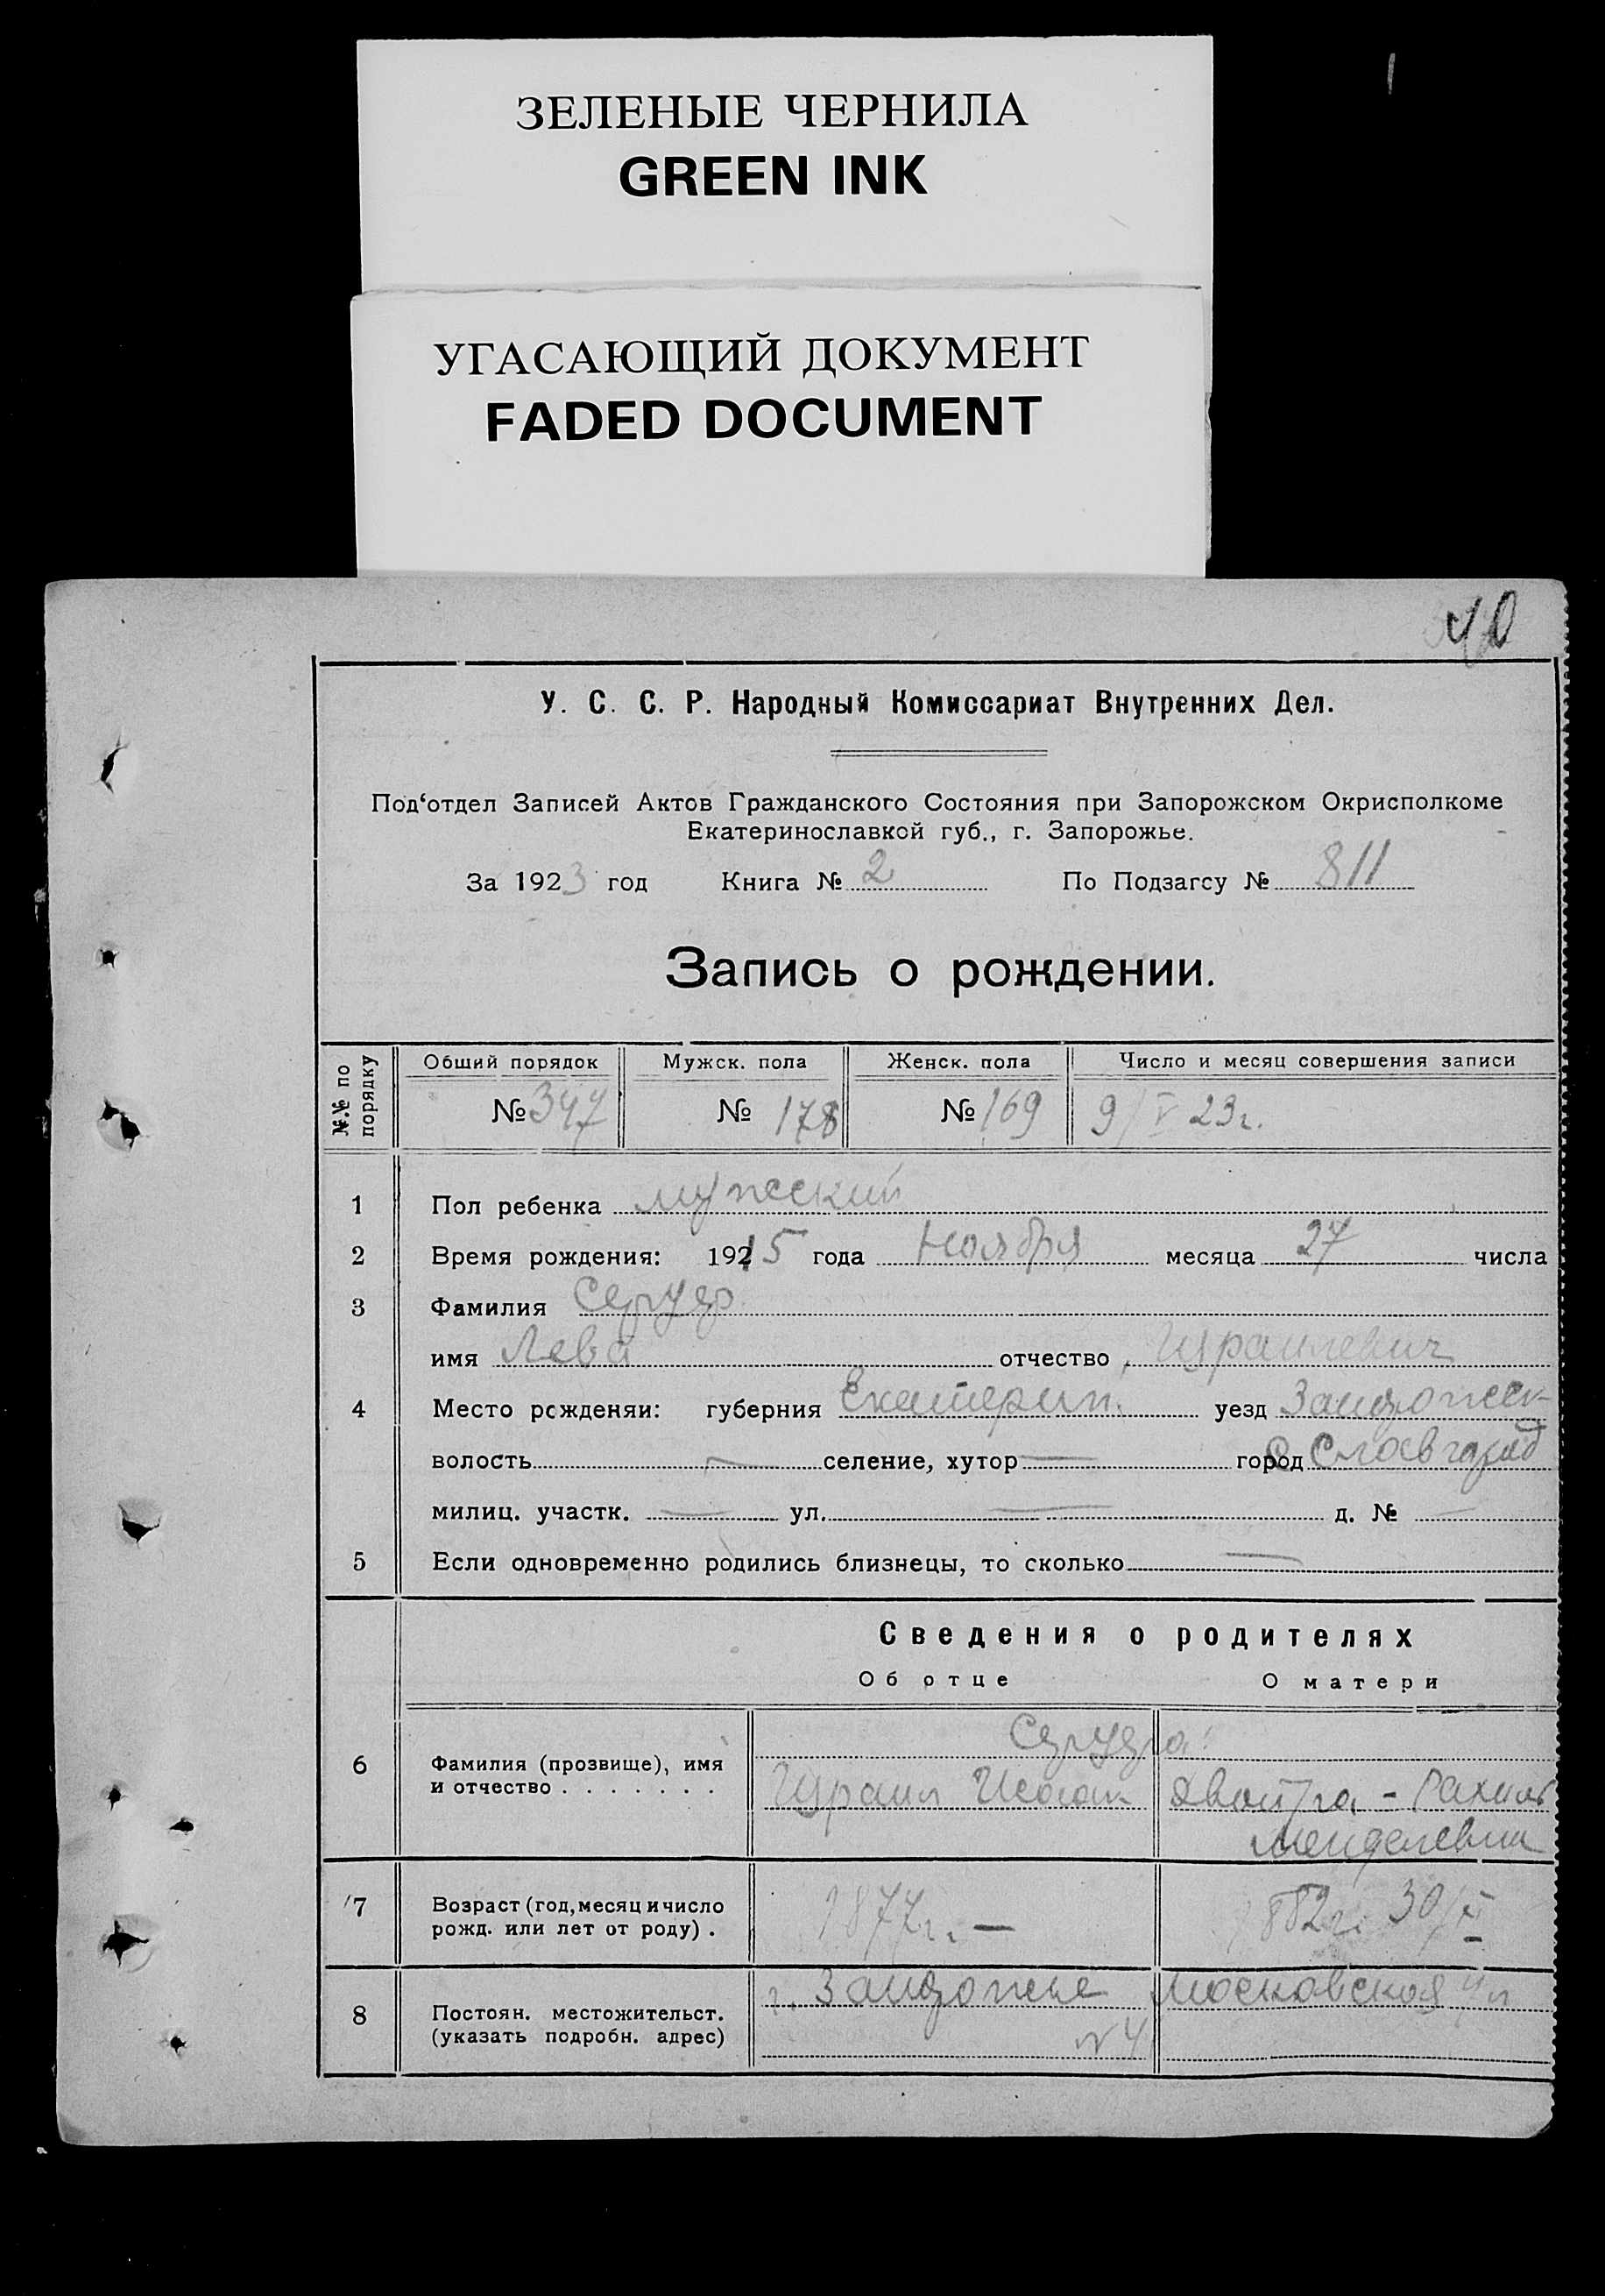 ЗЕЛЕНЫЕ ЧЕРНИЛА
GREEN INK
УГАСАЮЩИЙ ДОКУМЕНТ
FADED DOCUMENT
40
У. С. С. Р. Народный Комиссариат Внутренних Дел.
Под‘отдел Записей Актов Гражданского Состояния при Запорожском Окрисполкоме
Екатеринославкой губ., г. Запорожье.
За 1923 год Книга № 2 По Подзагсу № 811
Запись о рождении.
№№ по порядку Обший порядок Мужск. пола Женск. пола Число и месяц совершения записи
№ 347 № 178 № 169 9/V 23г.
1 Пол ребенка мужский
2 Время рождения: 1915 года Ноября месяца 27 числа
3 Фамилия
имя Лева отчество Израилевич
4 Место рожденяи: губерния Екатерин. уезд Запорожск-
волость — селение, хутор — город
милиц. участк. — ул. — д. № —
5 Если одновременно родились близнецы, то сколько —
Сведения о родителях
Об отце О матери
6 Фамилия (прозвище), имя
и отчество . . . . . . . Израил Исаак- Двойра - Рахиль
Менделевна
7 Возраст (год, месяц и число
рожд. или лет от роду) . 1877г. — 1882г.
8 Постоян. местожительст. г. Запорожье Московская ул
(указать подробн. адрес) № 4